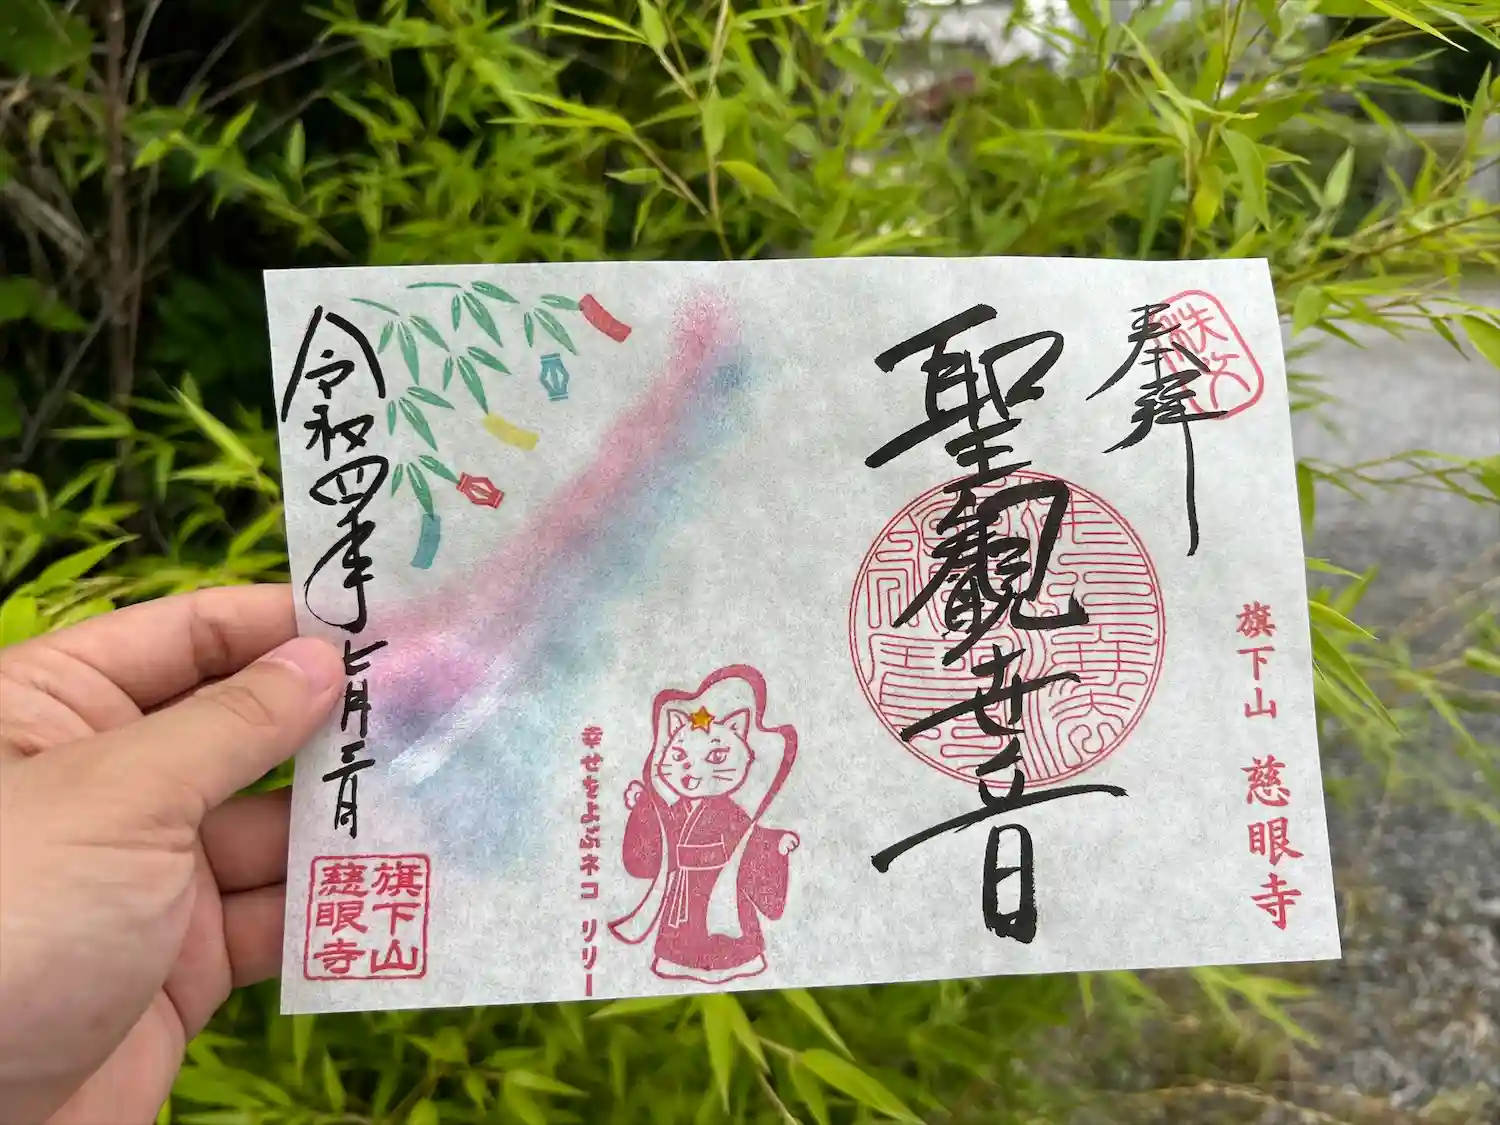 奉拝
旗下山 慈眼寺
聖観世音
幸せをよぶネコ リリー
令和四年七月三日
旗下山
慈眼寺